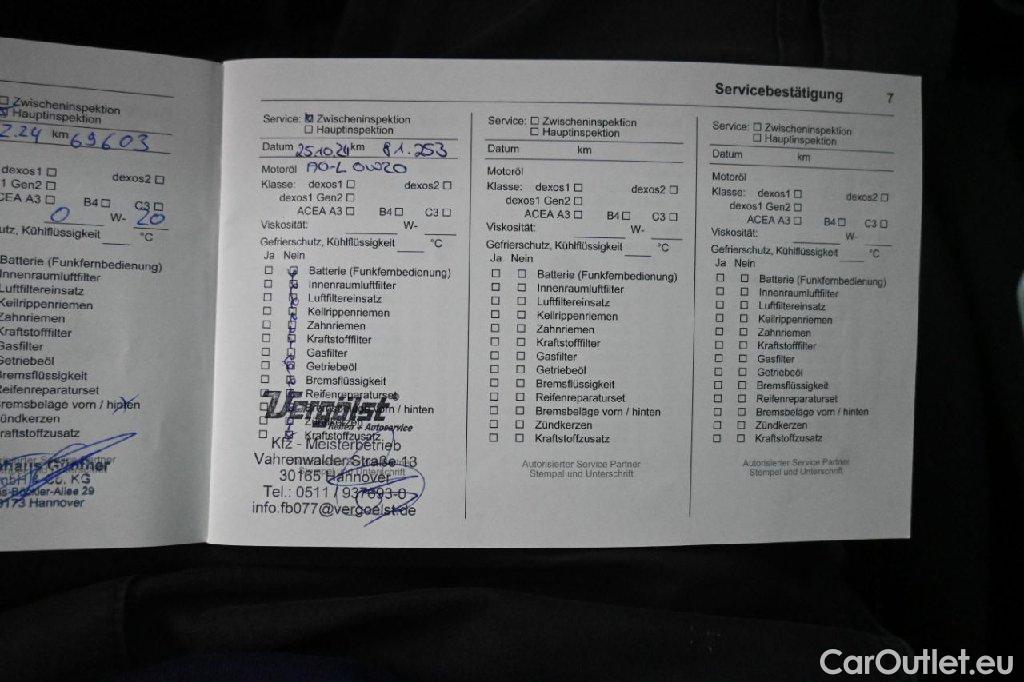 Zwischeninspektion
Hauptinspektion
2.24 km 69603
dexos1 dexos2
1 Gen2
ACEA A3 B4 C3
0 W- 20
utz, Kühlflüssigkeit °C
Batterie (Funkfernbedienung)
Innenraumluftfilter
Luftfiltereinsatz
Keilrippenriemen
Zahnriemen
Kraftstofffilter
Gasfilter
Getriebeöl
Bremsflüssigkeit
Reifenreparaturset
Bremsbeläge vorn / hinten
Zündkerzen
Kraftstoffzusatz
GmbH & Co. KG
30173 Hannover
Servicebestätigung 7
Service: Zwischeninspektion
Hauptinspektion
Datum 25.10.24 km 81.253
Motoröl AO-L 0W20
Klasse: dexos1 dexos2
dexos1 Gen2
ACEA A3 B4 C3
Viskosität: W-
Gefrierschutz, Kühlflüssigkeit °C
Ja Nein
Batterie (Funkfernbedienung)
Innenraumluftfilter
Luftfiltereinsatz
Keilrippenriemen
Zahnriemen
Kraftstofffilter
Gasfilter
Getriebeöl
Bremsflüssigkeit
Reifenreparaturset
vorn / hinten
Kraftstoffzusatz
Vergölst
Reifen + Autoservice
Kfz - Meisterbetrieb
Vahrenwalder Straße 13
30165 Hannover
Stempel und Unterschrift
Tel.: 0511 / 937693-0
info.fb077@vergoelst.de
Service: Zwischeninspektion
Hauptinspektion
Datum km
Motoröl
Klasse: dexos1 dexos2
dexos1 Gen2
ACEA A3 B4 C3
Viskosität: W-
Gefrierschutz, Kühlflüssigkeit °C
Ja Nein
Batterie (Funkfernbedienung)
Innenraumluftfilter
Luftfiltereinsatz
Keilrippenriemen
Zahnriemen
Kraftstofffilter
Gasfilter
Getriebeöl
Bremsflüssigkeit
Reifenreparaturset
Bremsbeläge vorn / hinten
Zündkerzen
Kraftstoffzusatz
Autorisierter Service Partner
Stempel und Unterschrift
Service: Zwischeninspektion
Hauptinspektion
Datum km
Motoröl
Klasse: dexos1 dexos2
dexos1 Gen2
ACEA A3 B4 C3
Viskosität: W-
Gefrierschutz, Kühlflüssigkeit °C
Ja Nein
Batterie (Funkfernbedienung)
Innenraumluftfilter
Luftfiltereinsatz
Keilrippenriemen
Zahnriemen
Kraftstofffilter
Gasfilter
Getriebeöl
Bremsflüssigkeit
Reifenreparaturset
Bremsbeläge vorn / hinten
Zündkerzen
Kraftstoffzusatz
Autorisierter Service Partner
Stempel und Unterschrift
CarOutlet.eu